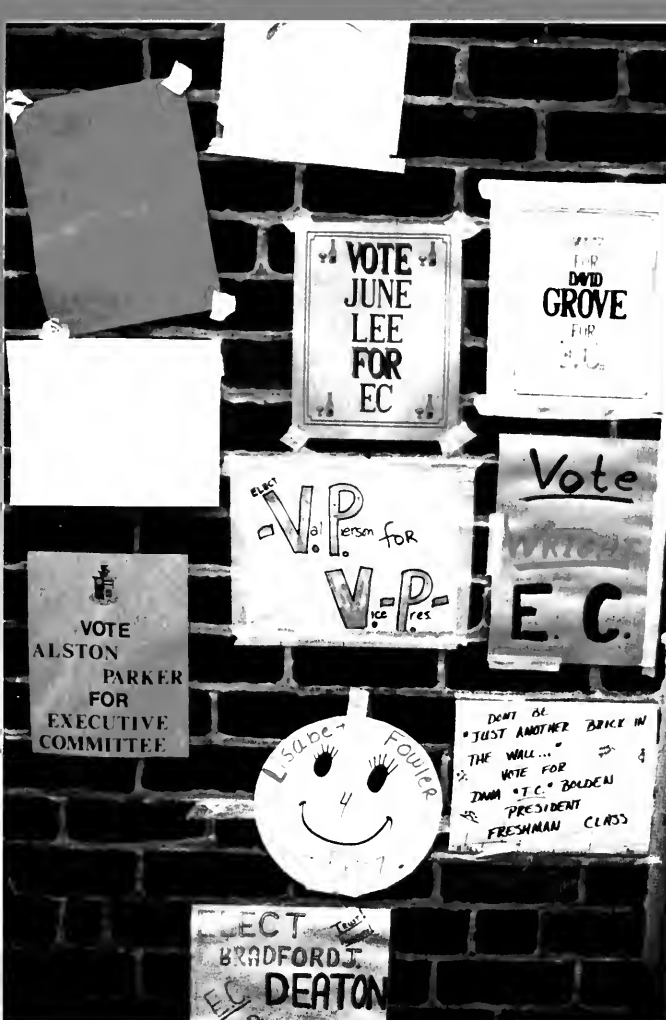 VOTE
JUNE
LEE
FOR
EC
VOTE
FOR
DAVID
GROVE
FOR
E.C.
ELECT
-Val Person for
Vice-Pres.-
Vote
E. C.
VOTE
ALSTON
PARKER
FOR
EXECUTIVE
COMMITTEE
Lisabet Fowler
4
DONT BE
"JUST ANOTHER BRICK IN
THE WALL..."
VOTE FOR
DANA "T.C." BOLDEN
PRESIDENT
FRESHMAN CLASS
ELECT
BRADFORD J.
DEATON
E.C.